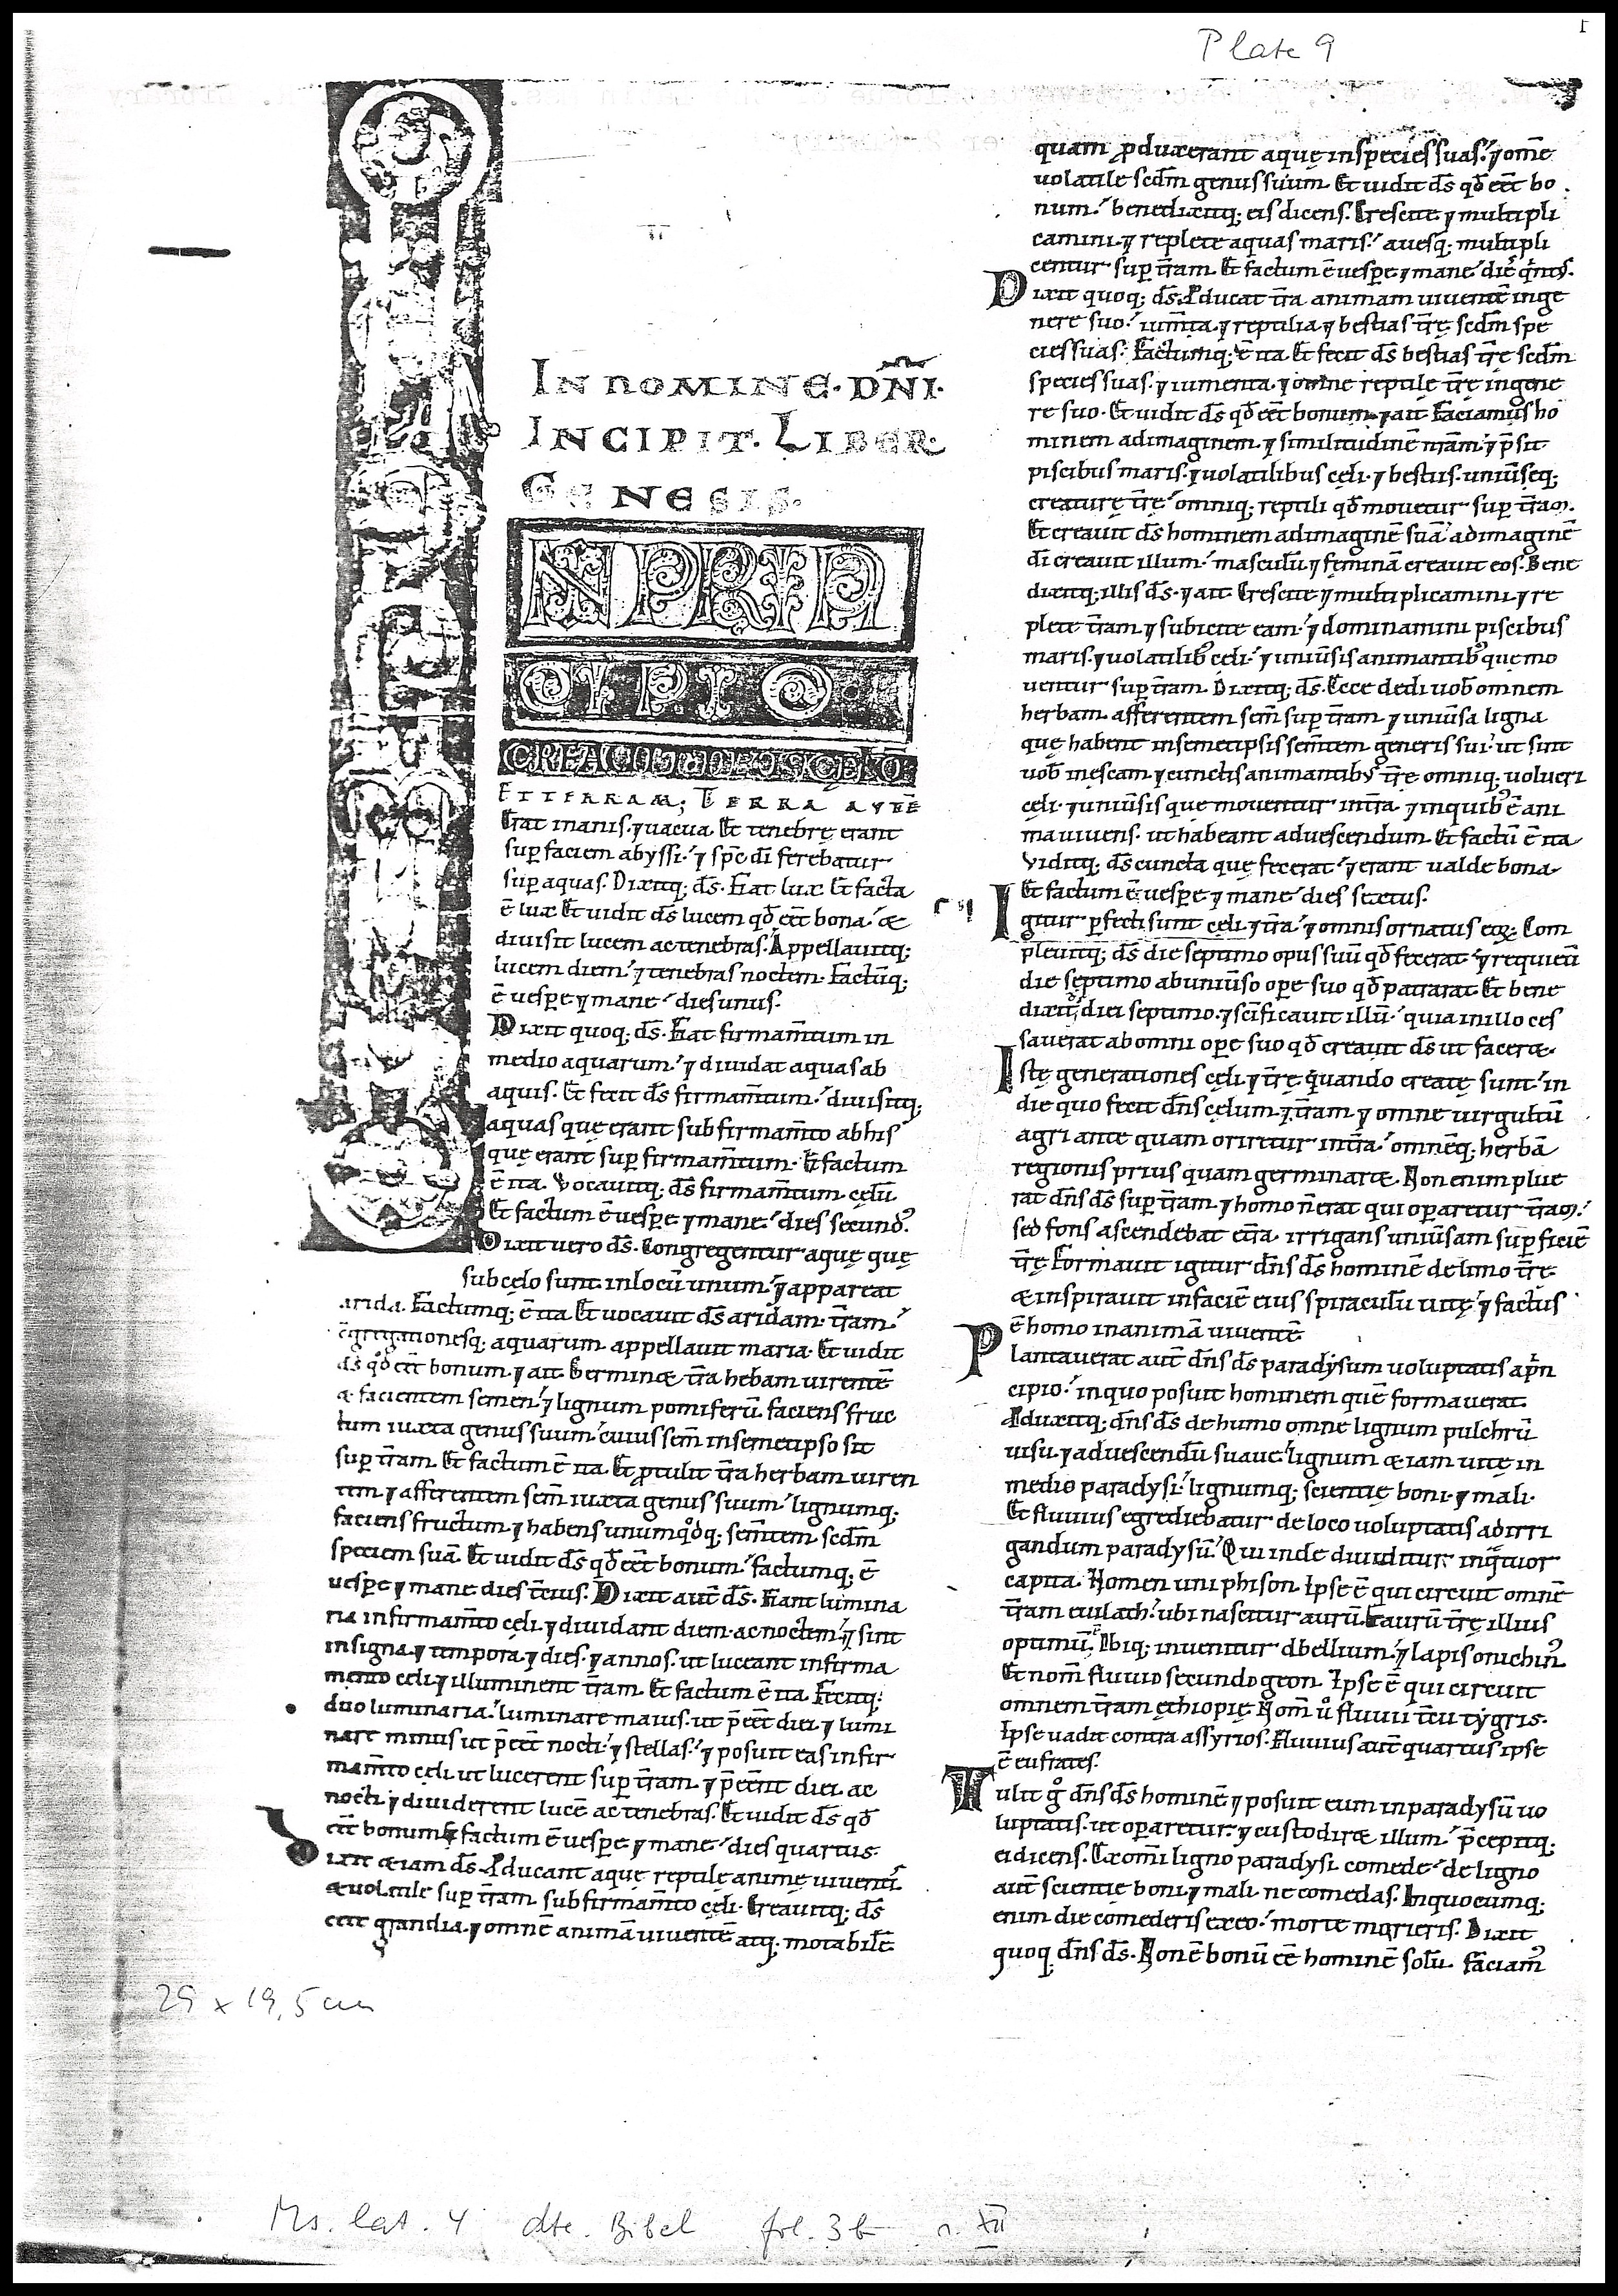 Plate 9
IN NOMINE. DN̄I.
INCIPIT. LIBER.
GENESIS.
N PRIN
CYPIO
CREAVIT DEUS CELŌ
ET TERRAM; TERRA AVTĒ
Erat inanis. ⁊ uacua. Et tenebrę erant
sup faciem abyssi. ⁊ sp̄c dī ferebatur
sup aquas. Dixitq; ds̄. Fiat lux Et facta
ē lux Et uidit ds̄ lucem qđ eēt bona. &
diuisit lucem ac tenebras. Appellauitq;
lucem diem. ⁊ tenebras noctem. Factūq;
ē uespe ⁊ mane. dies unus.
Dixit quoq; ds̄. Fiat firmam̄tum in
medio aquarum. ⁊ diuidat aquas ab
aquis. Et fecit ds̄ firmam̄tum. diuisitq;
aquas quę erant sub firmam̄to ab his
quę erant sup firmam̄tum. Et factum
ē ita. Vocauitq; ds̄ firmam̄tum cęlū
Et factum ē uespe ⁊ mane. dies secund᷒.
Dixit uero ds̄. Congregentur aquę quę
sub cęlo sunt in locū unum. ⁊ appareat
arida. Factumq; ē ita Et uocauit ds̄ aridam. tr̄am.
c̄gregationesq; aquarum appellauit maria. Et uidit
ds̄ qđ eēt bonum. ⁊ ait Germin& tr̄a hebam uirentē
& facientem semen. ⁊ lignum pomiferū. faciens fruc
tum iuxta genus suum. cuius sem̄ in semetipso sit
sup tr̄am. Et factum ē ita. Et ꝓtulit tr̄a herbam uiren
tem ⁊ afferentem sem̄ iuxta genus suum. lignumq;
faciens fructum ⁊ habens unumqđq; sem̄tem scdm̄
speciem suā. Et uidit ds̄ qđ eēt bonum. factumq; ē
uespe ⁊ mane dies tc̄ius. Dixit aut̄ ds̄. Fiant lumina
ria in firmam̄to cęli. ⁊ diuidant diem. ac noctem. ⁊ sint
in signa. ⁊ tempora. ⁊ dies. ⁊ annos. ut luceant in firma
mento cęli ⁊ illuminent tr̄am. Et factum ē ita. Fecitq;
duo luminaria. luminare maius. ut p̄eēt diei. ⁊ lumi
nare minus ut p̄eēt nocti. ⁊ stellas. ⁊ posuit eas in fir
mam̄to cęli ut lucerent sup tr̄am. ⁊ p̄eēnt diei ac
nocti ⁊ diuiderent lucē ac tenebras. Et uidit ds̄ qđ
eēt bonum & factum ē uespe ⁊ mane. dies quartus.
Dixit &iam ds̄. Producant aquę reptile animę uiuentis
& uolatile sup tr̄am. sub firmam̄to cęli. Creauitq; ds̄
cete grandia. ⁊ omnē animā uiuentē atq. motabilē
quam ꝓduxerant aquę in species suas. ⁊ om̄e
uolatile scdm̄ genus suum. Et uidit ds̄ qđ eēt bo
num. benedixitq; eis dicens. Crescite ⁊ multipli
camini. ⁊ replete aquas maris. auesq; multipli
centur sup tr̄am. Et factum ē uespe ⁊ mane. diē qͥnt᷒.
Dixit quoq; ds̄. Producat tr̄a animam uiuentē in ge
nere suo. ium̄ta. ⁊ reptilia ⁊ bestias tr̄ę scdm̄ spe
cies suas. Factumq; ē ita. Et fecit ds̄ bestias tr̄ę scdm̄
species suas. ⁊ iumenta. ⁊ omne reptile tr̄ę in gene
re suo. Et uidit ds̄ qđ eēt bonum. ⁊ ait Faciamus ho
minem ad imaginem. ⁊ similitudinē nr̄am. ⁊ p̄sit
piscibus maris. ⁊ uolatilibus cęli. ⁊ bestiis. uniūseq;
creaturę tr̄ę. omniq; reptili qđ mouetur sup tr̄am.
Et creauit ds̄ hominem ad imaginē suā. ad imaginē
dī creauit illum. masculū ⁊ feminā creauit eos. Bene
dixitq; illis ds̄. ⁊ ait Crescite ⁊ multiplicamini ⁊ re
plete tr̄am ⁊ subicite eam. ⁊ dominamini piscibus
maris. ⁊ uolatilib᷒ cęli. ⁊ uniūsis animantib᷒ que mo
uentur sup tr̄am. Dixitq; ds̄. Ecce dedi uob̄ omnem
herbam afferentem sem̄ sup tr̄am ⁊ uniūsa ligna
quę habent in semetipsis sem̄tem generis sui. ut sint
uob̄ in escam ⁊ cunctis animantib᷒ tr̄ę omniq; uolucri
cęli. ⁊ uniūsis que mouentur in tr̄a ⁊ in quib᷒ ē ani
ma uiuens. ut habeant aduescendum. Et factū ē ita
Viditq; ds̄ cuncta quę fecerat. ⁊ erant ualde bona
Et factum ē uespe ⁊ mane. dies sextus.
Igitur pfecti sunt cęli ⁊ tr̄a. ⁊ omnis ornatus eoꝝ. Com
pleuitq; ds̄ die septimo opus suū qđ fecerat. ⁊ requieū
die septimo ab uniūso ope suo qđ patrarat. Et bene
dixitq; diei septimo. ⁊ sc̄ificauit illū. quia in illo ces
sauerat ab omni ope suo qđ creauit ds̄ ut facer&.
Istę generationes cęli ⁊ tr̄ę quando creatę sunt. in
die quo fecit dn̄s cęlum ⁊ tr̄am ⁊ omne uirgultū
agri ante quam oriretur in tr̄a. omnēq; herbā
regionis prius quam germinar&. Non enim plue
rat dn̄s ds̄ sup tr̄am. ⁊ homo n̄ erat qui oparetur tr̄am.
sed fons ascendebat e tr̄a. irrigans uniūsam supficiē
tr̄ę Formauit igitur dn̄s ds̄ hominē de limo tr̄ę.
& inspirauit in faciē eius spiraculū uitę. ⁊ factus
ē homo in animā uiuentē
Plantauerat aut̄ dn̄s ds̄ paradysum uoluptatis a pͥn
cipio. in quo posuit hominem quē formauerat.
Produxitq; dn̄s ds̄ de humo omne lignum pulchrū
uisu. ⁊ aduescendū suaue. lignum &iam uitę in
medio paradysi. lignumq; scientię boni. ⁊ mali.
Et fluuius egrediebatur de loco uoluptatis ad irri
gandum paradysū. Qui inde diuiditur in qͣtuor
capita. Nomen uni phison. Ipse ē qui circuit omnē
tr̄am euilath. ubi nascitur aurū. & aurū tr̄ę illius
optimū. Ibiq; inuenitur dbellium. ⁊ lapis onichin᷒.
Et nom̄ fluuio secundo geon. Ipse ē qui circuit
omnem tr̄am ęthiopię. Nom̄ uͦ fluuii tc̄ii tygris.
Ipse uadit contra assyrios. Fluuius aut̄ quartus ipse
ē eufrates.
Tulit gͦ dn̄s ds̄ hominē ⁊ posuit eum in paradysū uo
luptatis. ut oparetur. ⁊ custodir& illum. p̄cepitq;
ei dicens. Ex om̄i ligno paradysi comede. de ligno
aut̄ scientię boni ⁊ mali ne comedas. In quocumq;
enim die comederis ex eo. morte morieris. Dixit
quoq. dn̄s ds̄. Non ē bonū eē hominē solū. faciam᷒
29 x 19,5 cm
Ms. lat. 4 dte. Bibel fol. 3b n. XII